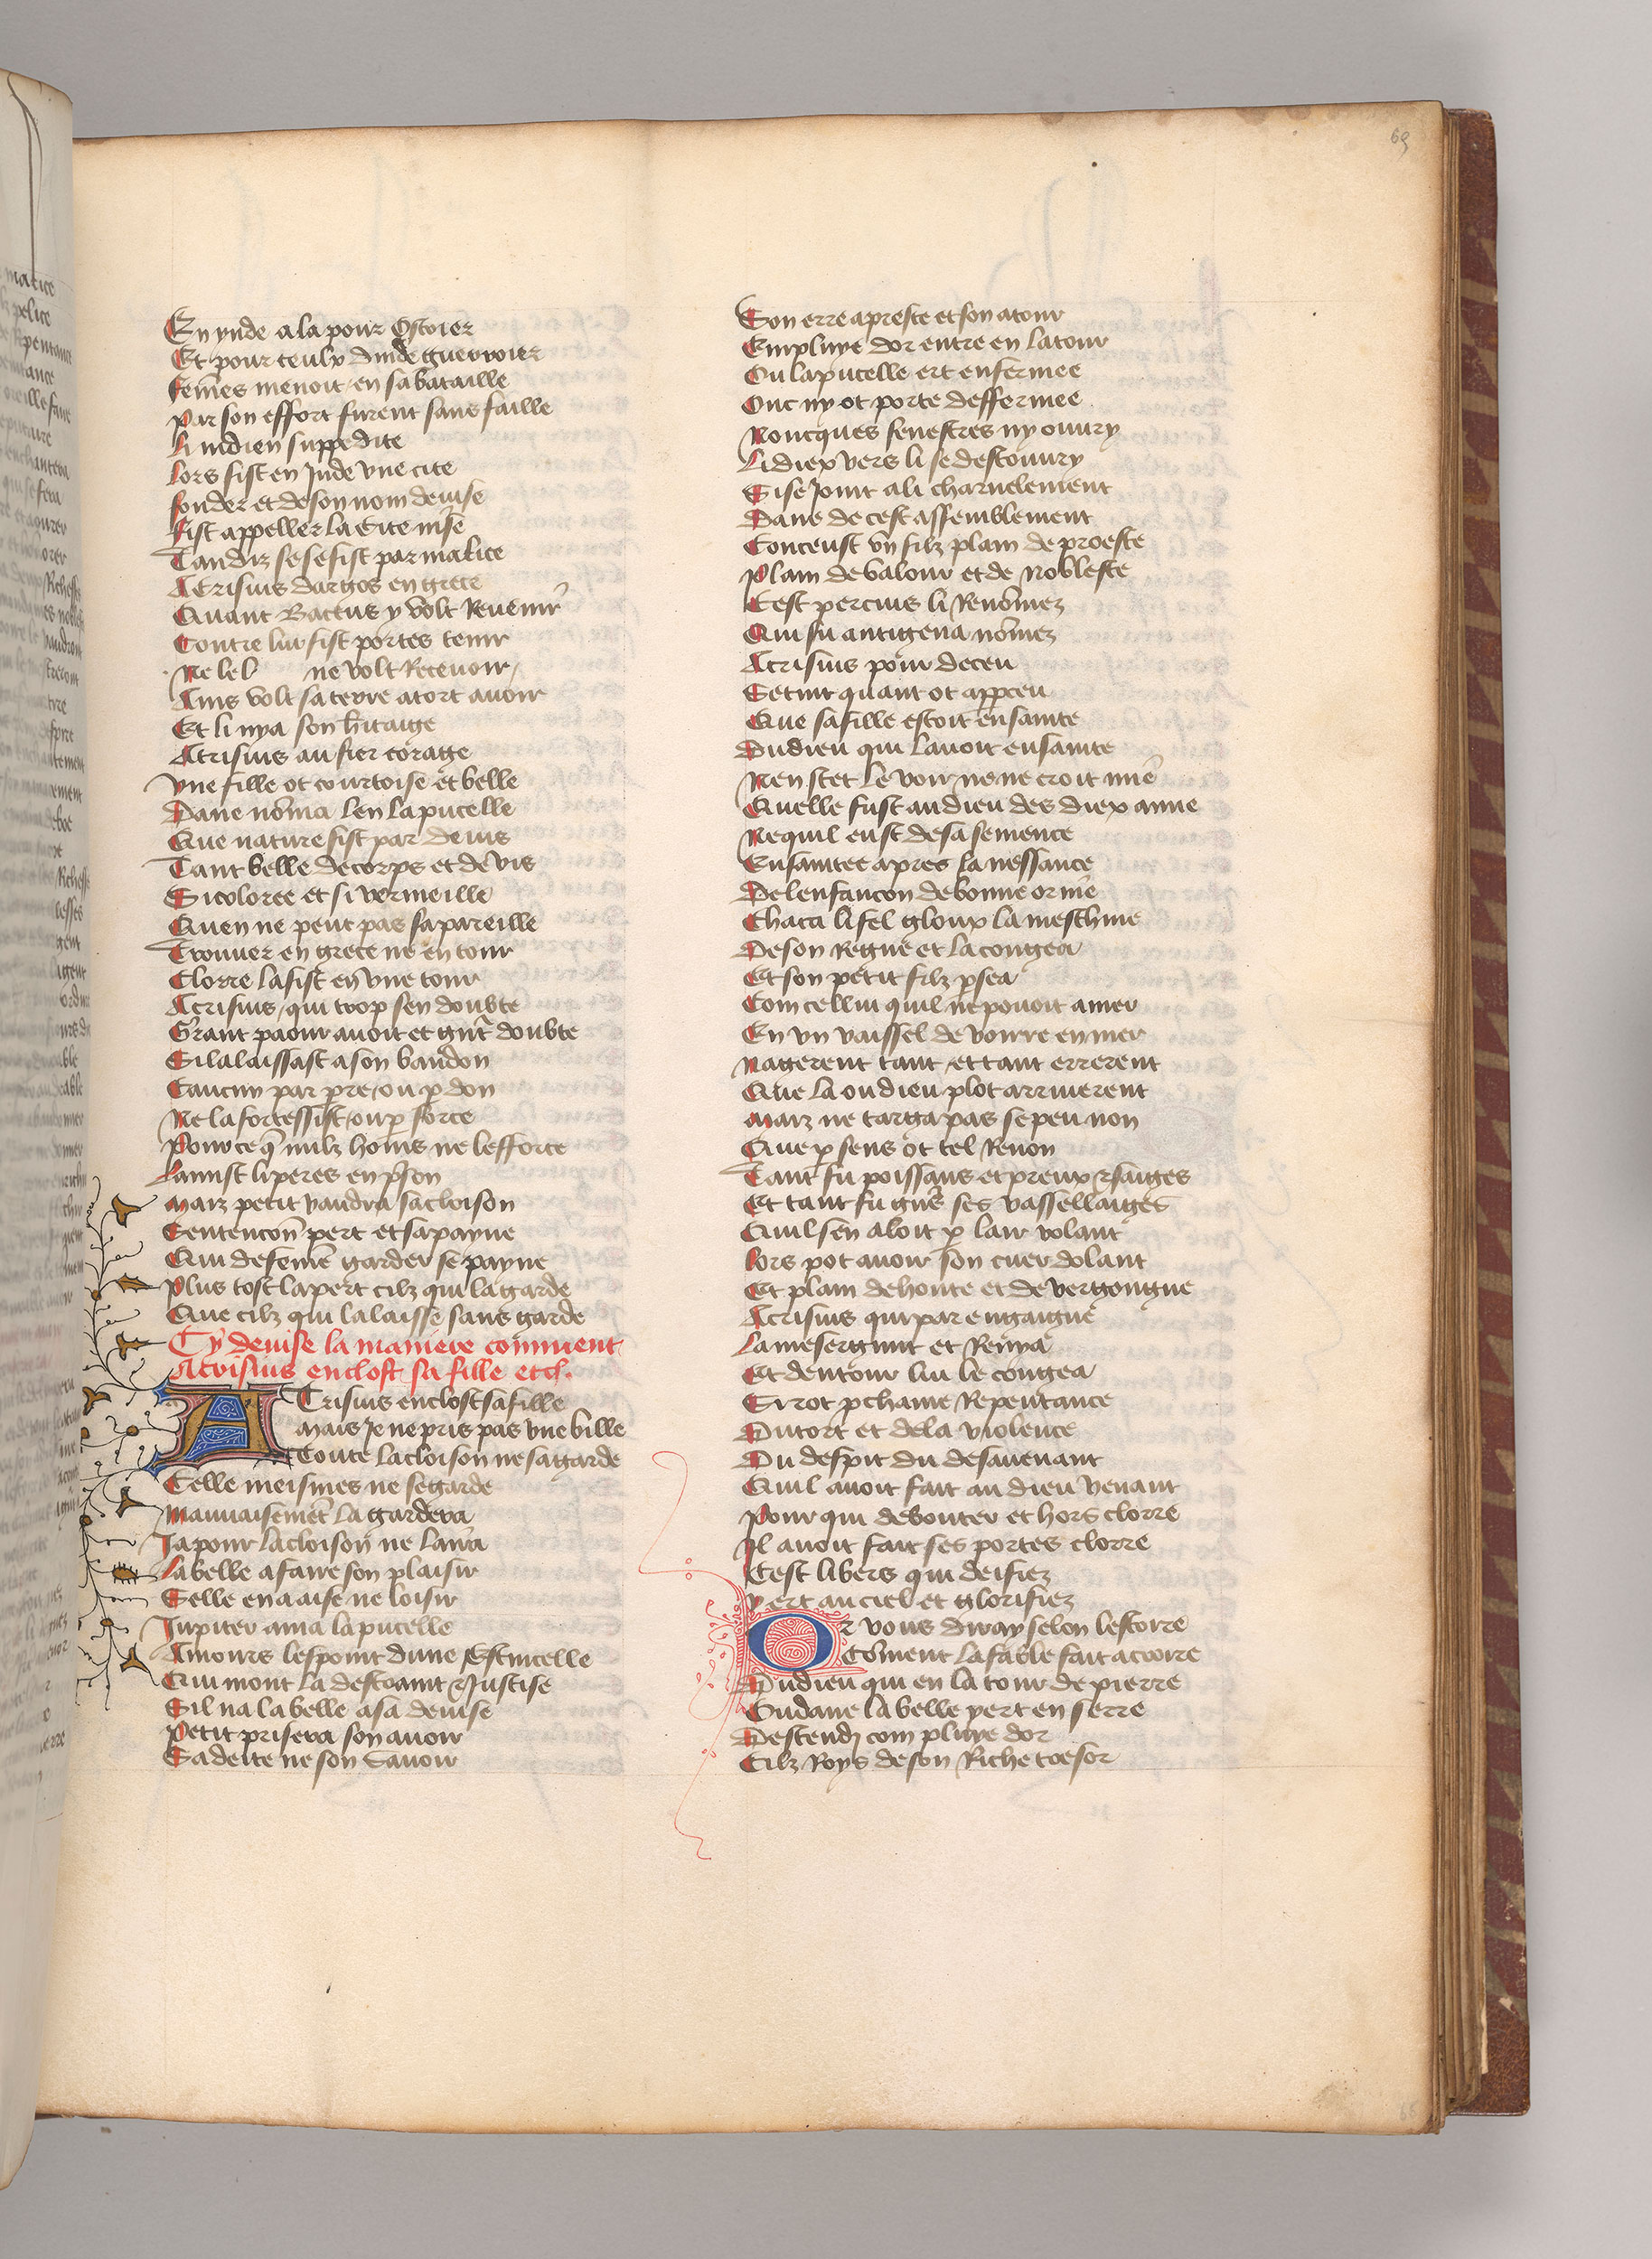 69
En ynde ala pour Ostoier
Et pour ceulx dinde guerroier
femes menoit en sa bataille
Par son effort furent sans faille
Li indien suppedite
Lors fist en Jnde vne cite
fonder et de son nom deuise
Fist appeller la cite nise
Tandiz se se fist par malice
Acrisius dargos en grece
Quant Baccus y volt Reuenir
Contre lui fist portes tenir
Ne le l ne volt Receuoir
Ains volt sa terre a tort auoir
Et li nya son hitaige
Acrisius au fier corage
Vne fille ot courtoise et belle
Dane noma len la pucelle
Que nature fist par deuis
Tant belle de corps et de vis
Si coloree et si vermeille
Quen ne peut pas sa pareille
Trouuer en grece ne en tour
Clorre la fist en vne tour
Acrisius qui trop sen doubte
Grant paour auoit et gnt doubte
Sil alaissast a son bandon
Caucun par pre ou p don
Ne la fortessist ou p force
Pour ce q nulz homs ne lefforce
La mist li peres en pson
Maiz petit vaudra sa cloison
Sentencon pert et sa payne
Qui de feme garder se payne
Plus tost la pert cilz qui la garde
Que cilz qui la laisse sans garde
Cy deuise la maniere comment
Acrisius enclost sa fille etc.
ACrisius enclost sa fille
Mais Je ne pris pas vne bille
Toute la cloison ne sa garde
Celle meismes ne se garde
Mauuaisemet la gardera
Ja pour la cloison ne laira
La belle a faire son plaisir
Celle en a aise ne loisir
Jupiter ama la pucelle
Amours lespoint dune Estincelle
Qui mont la destraint & Justise
Sil na la belle a sa deuise
Petit prisera son auoir
Sa deite ne son Sauoir
Son erre apreste et son atour
En pluye dor entre en la tour
Ou la pucelle ert enfermee
Onc ny ot porte deffermee
Noncques fenestres ny ouury
Li diex vers li se descouury
Si se Joint a li charnelement
Dane de cest assemblement
Conceust vn filz plain de proesce
Plain de valour et de noblesce
Cest perceus li Renomez
Qui fu antigena nomez
Acrisius pour deceu
Se tint quant ot apperceu
Que sa fille estoit ensainte
Du dieu qui lauoit ensainte
Nen scet le voir ne ne croit mie
Quelle fust au dieu des diex amie
Ne quil eust de sa semence
Ensaintee apres la nessance
De lenfancon de bonne orine
Chaca li fel gloux la meschine
De son Regne et la congea
Et son petit filz psea
Com cellui quil ne pouoit amer
En vn vaissel de voirre en mer
Nagerent tant et tant errerent
Que la ou dieu plot arriuerent
Maiz ne targa pas se peu non
Que p sens ot tel Renon
Tant fu poissans et preux & saiges
Et tant fu gns ses vassellaiges
Quil sen aloit p lair volant
Lors pot auoir son cuer dolant
Et plain de honte et de vergongne
Acrisius qui par engaigne
La mesergint et Renya
Et dentour lui le congea
Si rot pchaine Repentance
Du tort et de la violence
Du despit du desauenant
Quil auoit fait au dieu venant
Pour qui debouter et hors clorre
Il auoit fait ses portes clorre
Cest libers qui deifiez
Yert au ciel et glorifiez
Or vous diray selon lestoire
Coment la fable fait acroire
Du dieu qui en la tour de pierre
Ou dane la belle yert en serre
Destendy com pluye dor
Cilz Roys de son Riche tresor